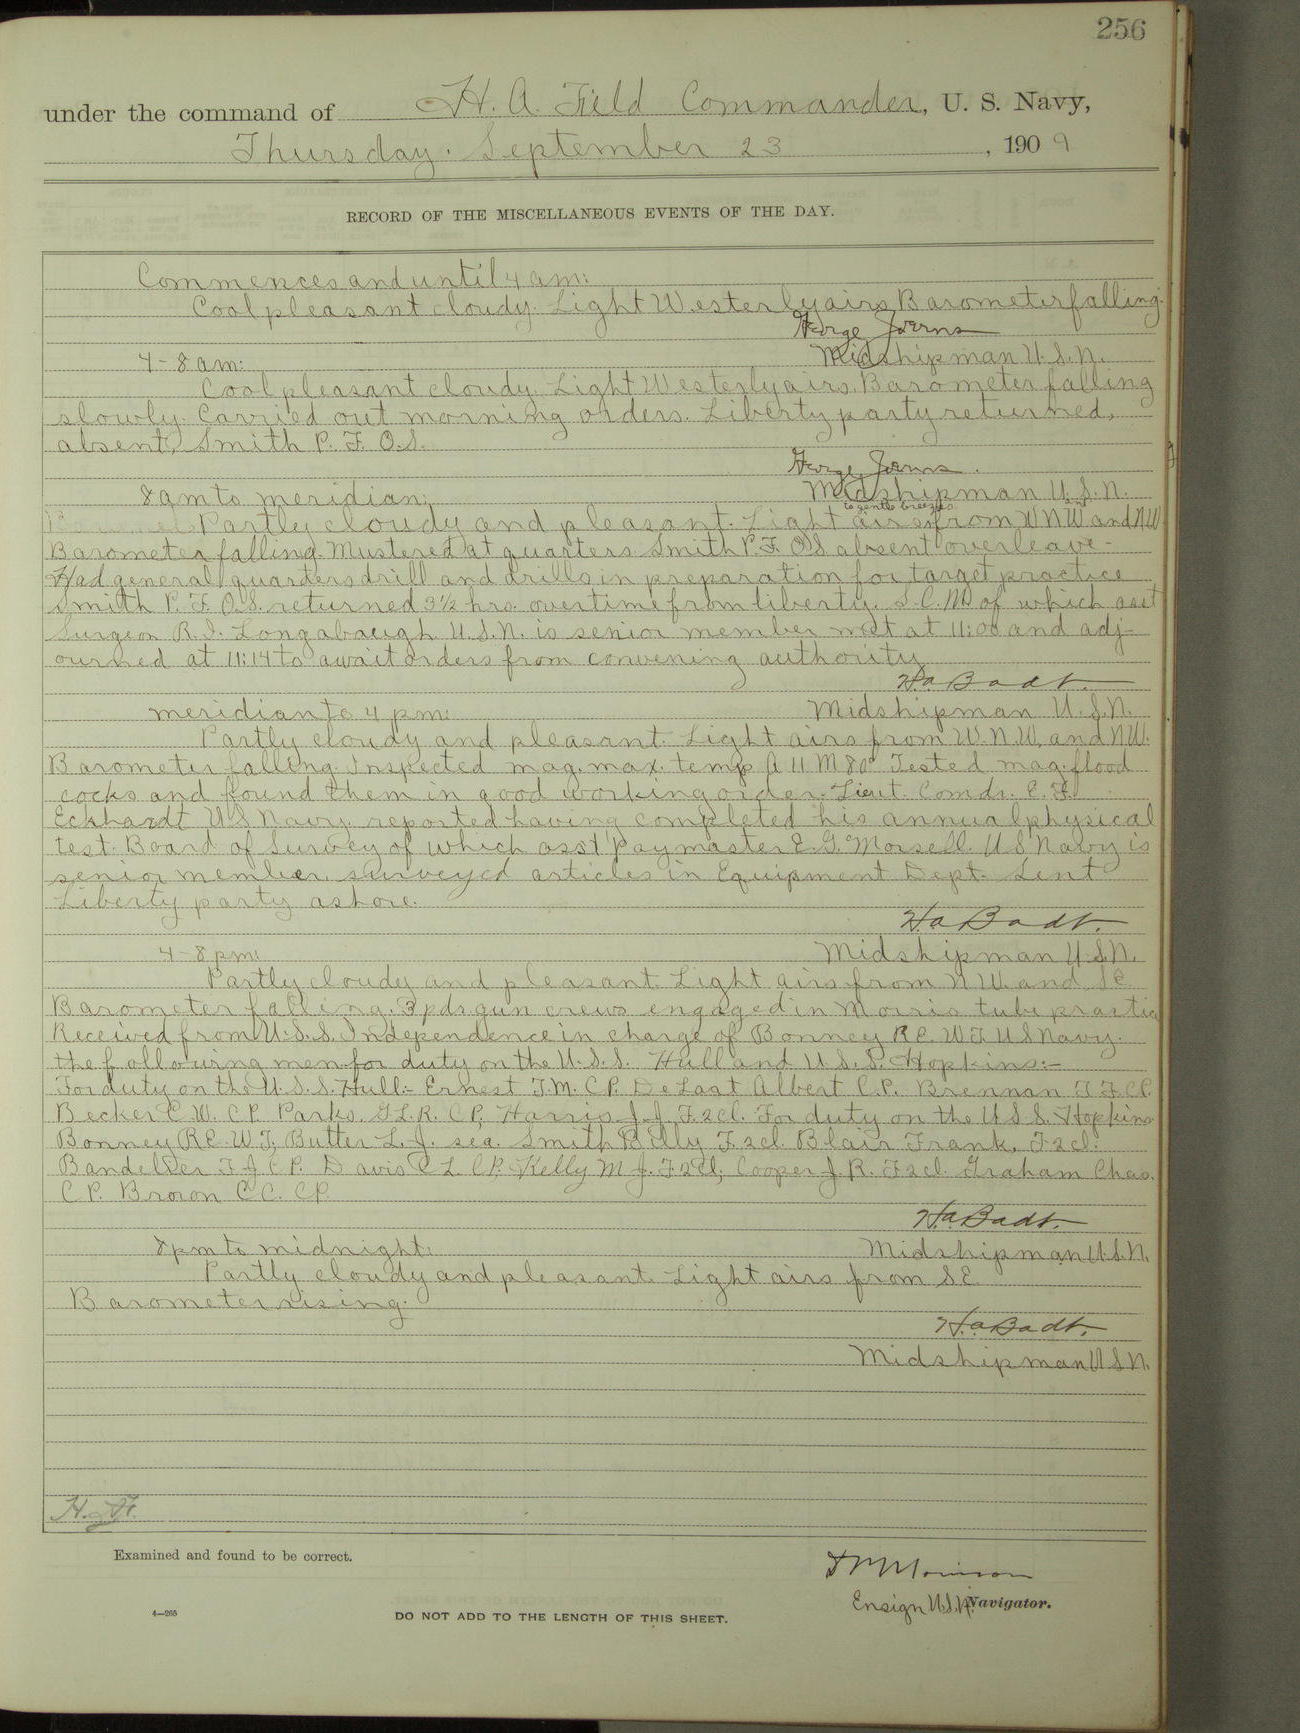 256
under the command of H. A. Field Commander, U. S. Navy,
Thursday. September 23, 1909
RECORD OF THE MISCELLANEOUS EVENTS OF THE DAY.
Commences and until 4 am:
Cool pleasant cloudy. Light Westerly airs. Barometer falling.
George Joerns
Midshipman U.S.N.
4-8 am:
Cool pleasant cloudy. Light Westerly airs. Barometer falling
slowly. Carried out morning orders. Liberty party returned,
absent, Smith P. F. O.S.
George Joerns
Midshipman U.S.N.
8 am to meridian:
to gentle breezes
Partly cloudy and pleasant. Light airs from WNW and NW
Barometer falling. Mustered at quarters Smith P. F. OS absent overleave-
Had general quarters drill and drills in preparation for target practice
Smith P. F. O.S. returned 3½ hrs. overtime from liberty. S.C.M. of which asst
Surgeon R. I. Longabaugh U.S.N. is senior member met at 11:00 and adj-
ourned at 11:14 to await orders from convening authority
H.A. Badt.
Midshipman U.S.N.
meridian to 4 pm:
Partly cloudy and pleasant. Light airs from W.N.W. and NW.
Barometer falling. Inspected mag. max. temp A 11 M 80° Tested mag. flood
cocks and found them in good working order. Lieut. Comdr. E. F.
Eckhardt U S Navy. reported having completed his annual physical
test. Board of Survey of which asst Paymaster E. G. Morsell U S Navy is
senior member, surveyed articles in Equipment Dept. Sent
Liberty party ashore.
H.A. Badt.
Midshipman U.S.N.
4-8 pm:
Partly cloudy and pleasant. Light airs from N W. and S E.
Barometer falling. 3 pdr. gun crews engaged in Morris tube practice
Received from U.S.S. Independence in charge of Bonney R.E. W.T. U S Navy.
the following men for duty on the U.S.S. Hull and U.S.S. Hopkins:-
For duty on the U.S.S. Hull:- Ernest T.M. C.P. De Last Albert C.P. Brennan T F. C.P.
Becker C.W. C.P. Parks. G.L.R. C.P. Harris J.J. F.2cl. For duty on the U S S. Hopkins
Bonney R.E. W.T; Butter L. J. sea. Smith Billy F.2cl. Blair Frank, F.2cl.
Bandelier F J. C.P. Davis C L C.P. Kelly M J. F.2cl; Cooper J. R. F.2cl. Graham Chas.
C.P. Brown C C. C.P.
H.A. Badt.
Midshipman U.S.N.
8 pm to midnight:
Partly cloudy and pleasant. Light airs from S E.
Barometer rising.
H.A. Badt.
Midshipman U S N.
Examined and found to be correct.
Ensign U.S.N. Navigator.
4—265
DO NOT ADD TO THE LENGTH OF THIS SHEET.